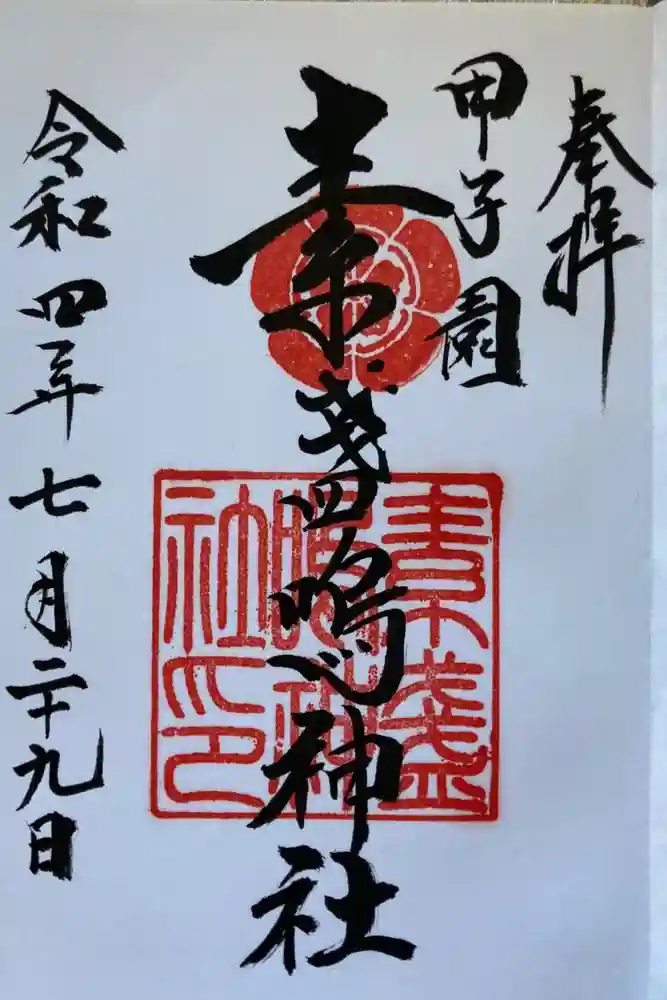 奉拝
甲子園
素盞嗚神社
令和四年七月二十九日
素盞
嗚神
社印